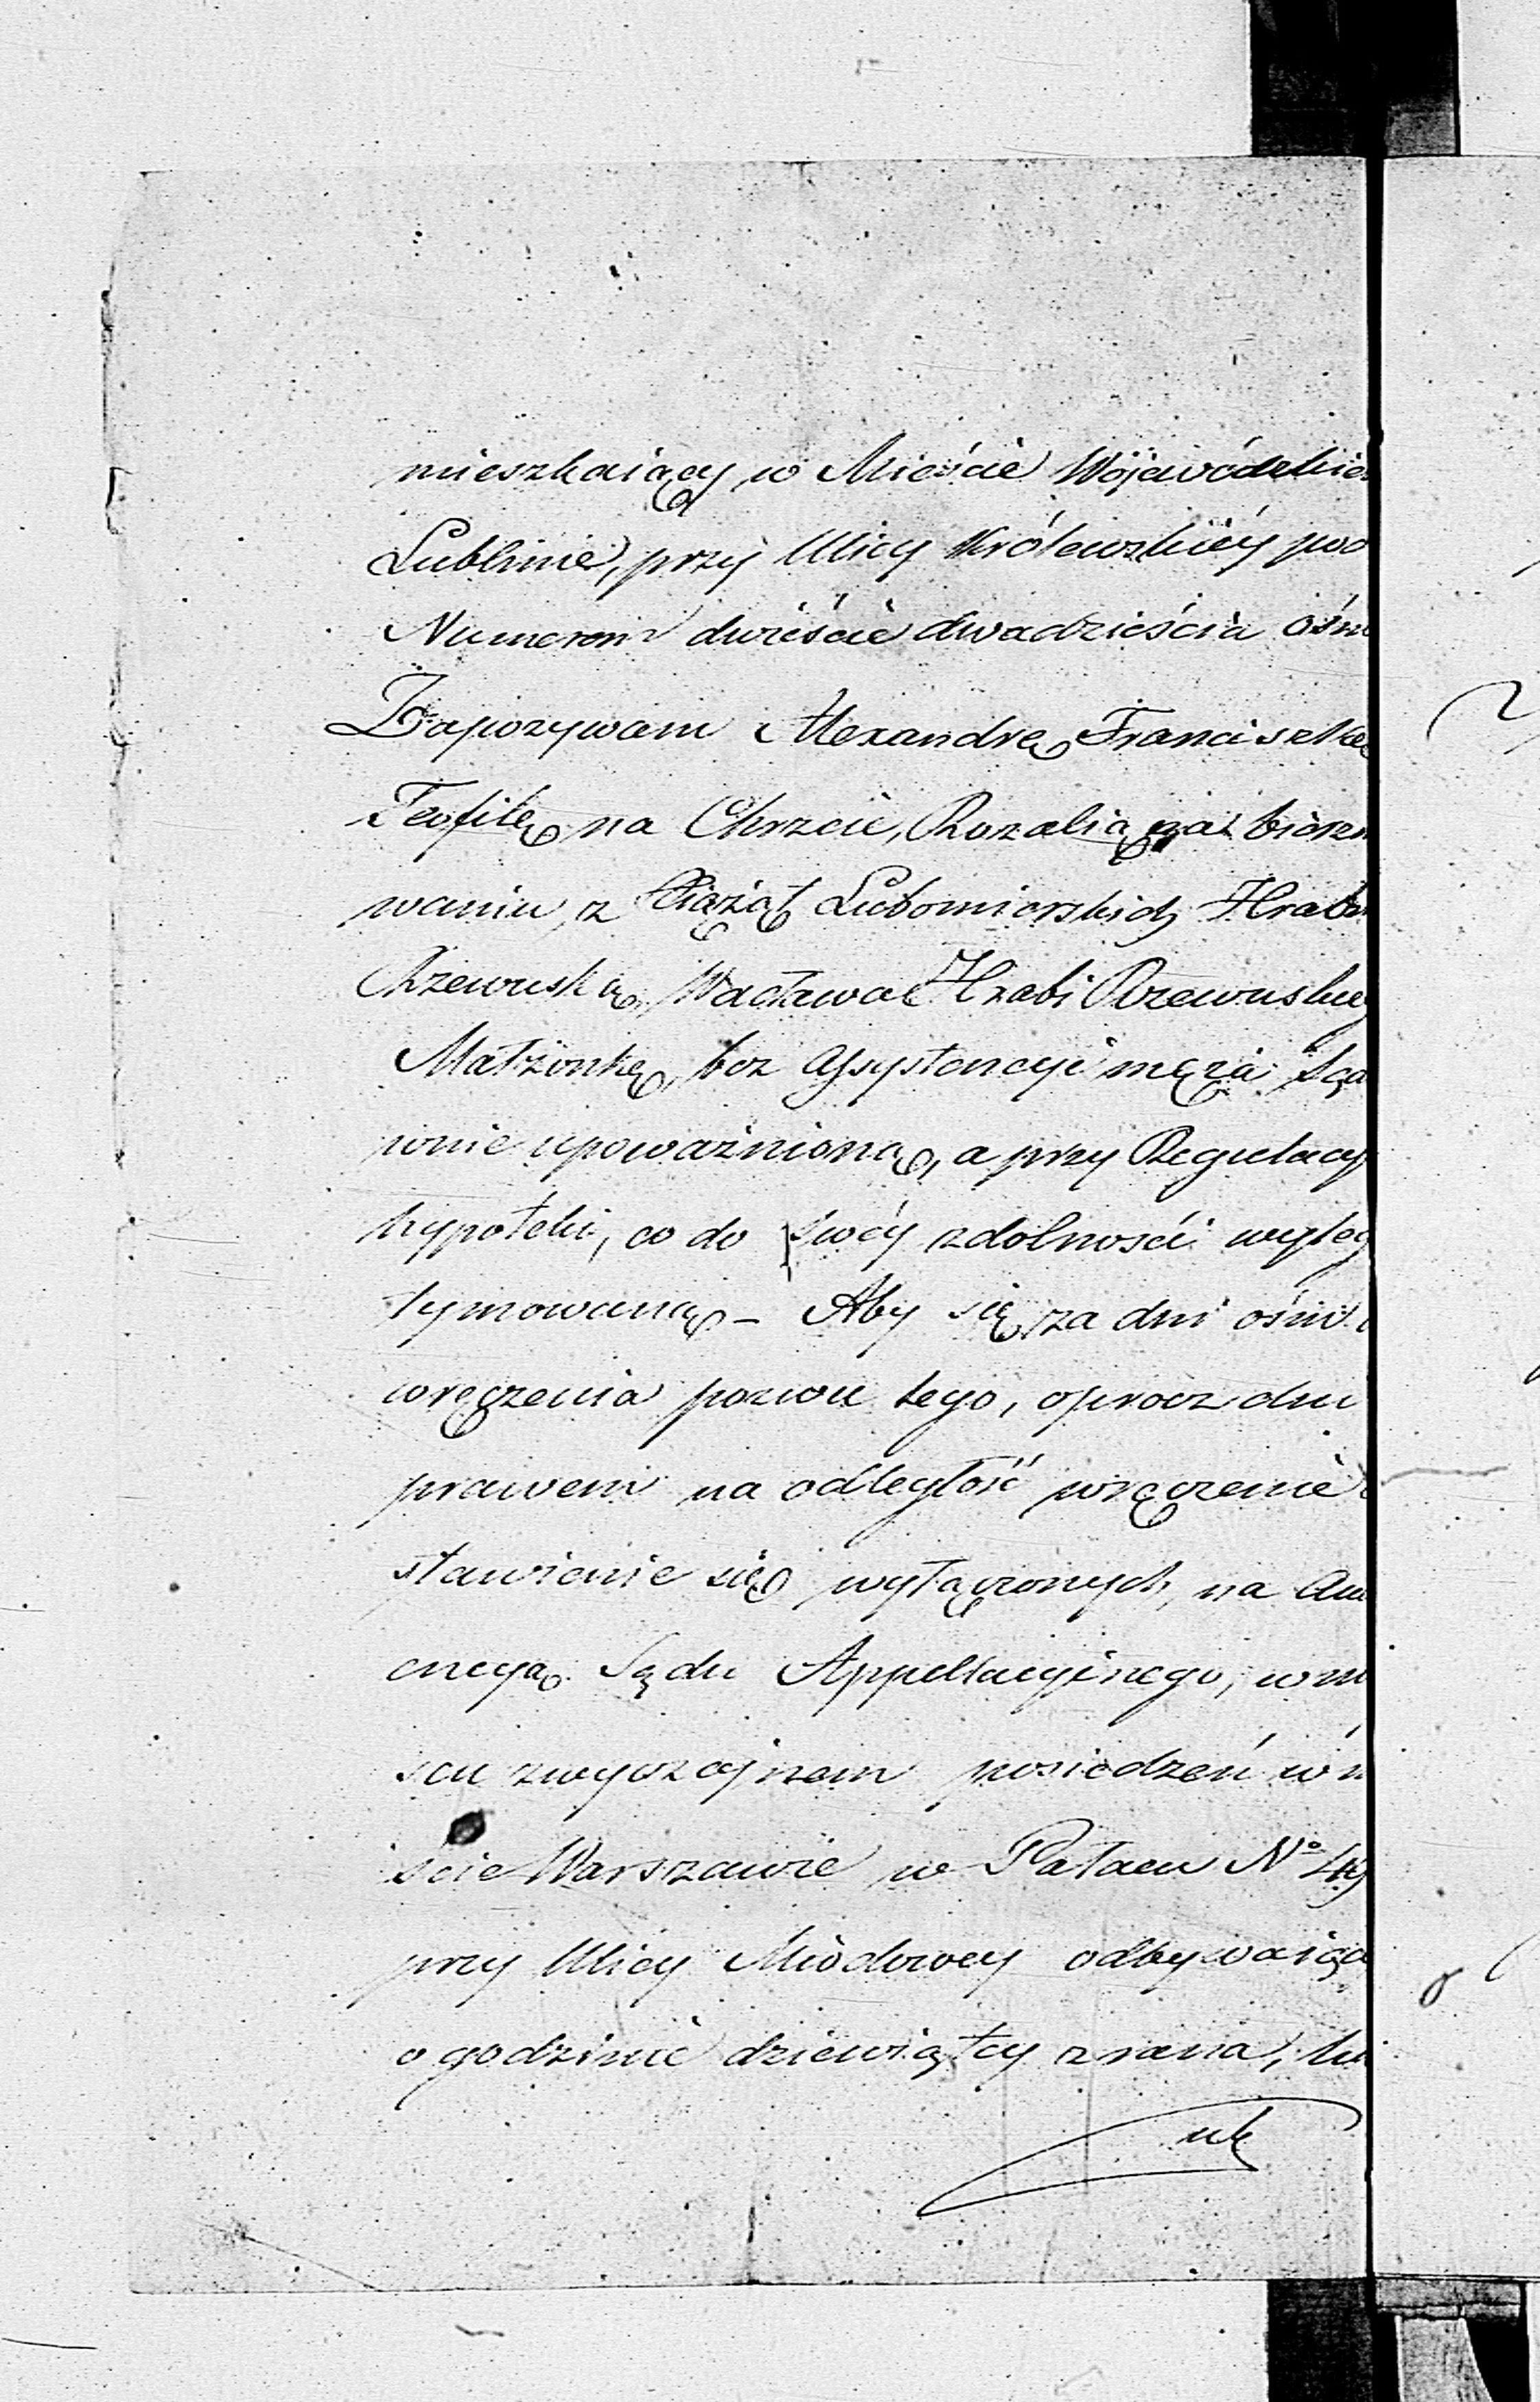 mieszkaiący w Mieście Wojewódzkie
Lublinie, przy Ulicy Królewskiéy pod
Numerem dwieście dwadzieścia ósm
Zapozywam Alexandrę Franciszkę
Teofilę na Chrzcie, Rozalią na bierzm
waniu z Xiążąt Lubomirskich Hrabi
Rzewuską, Wacława Hrabi Rzewuskieg
Małżonkę, bez Assystencyi męża Są
wnie upoważnioną, a przy Regulacy
hypoteki, co do swéy zdolności wyleg
tymowaną – Aby się za dni ośm
wręczenia pozwu tego, oprócz dni
prawem na odległość wręczenie
stawienie się wyłączonych, na Au
encyą Sądu Appellacyinego, w mi
scu zwyczajnem posiedzeń w m
ście Warszawie w Pałacu Nº 49
przy Ulicy Miodowey odbywaiąc
o godzinie dziewiątey z rana, lu